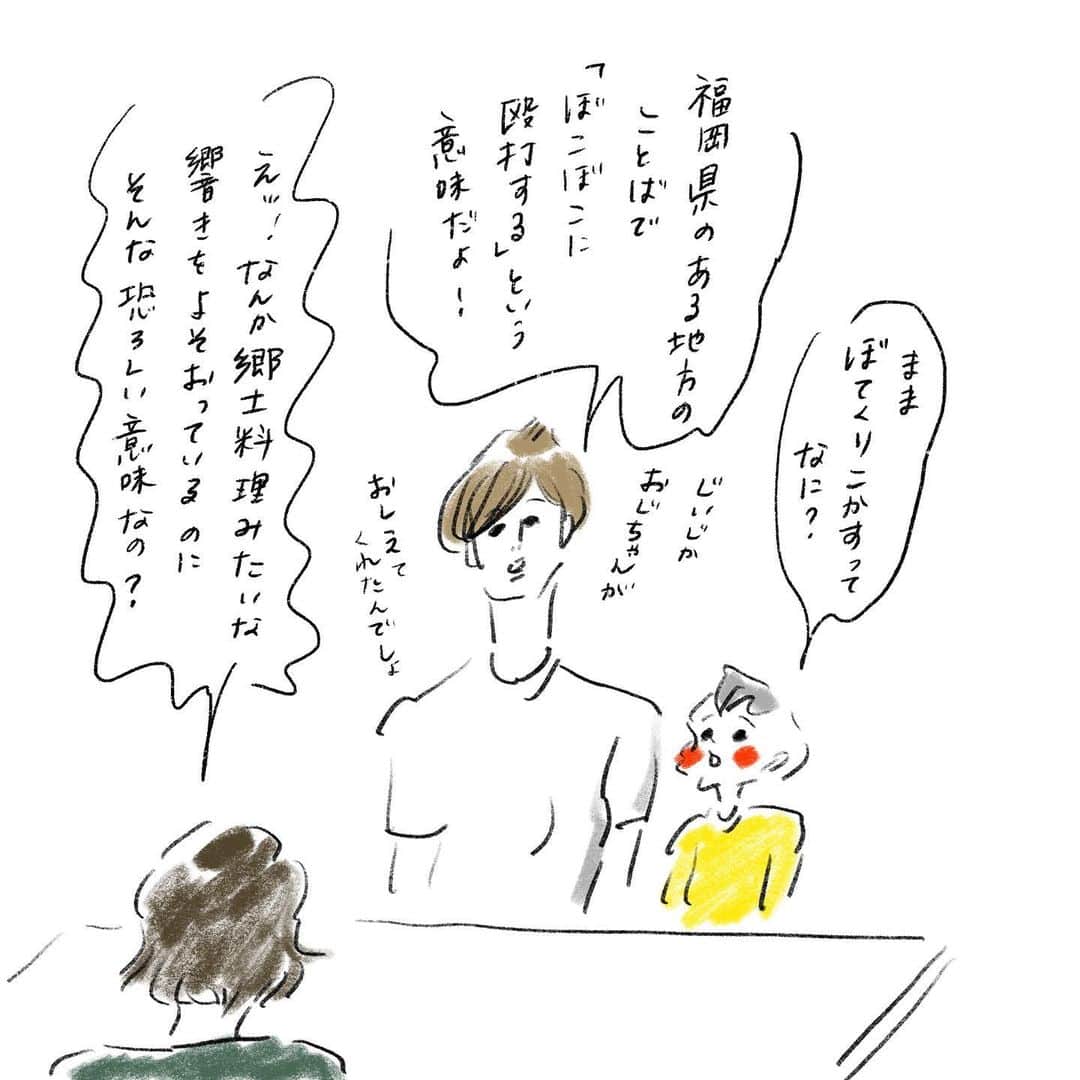 まま
ぼてくりこかすって
なに?
福岡県のある地方の
ことばで
「ぼこぼこに
殴打する」という
意味だよ!
じいじか
おじちゃんが
おしえて
くれたんでしょ
えッ!なんか郷土料理みたいな
響きをよそおっているのに
そんな恐ろしい意味なの?